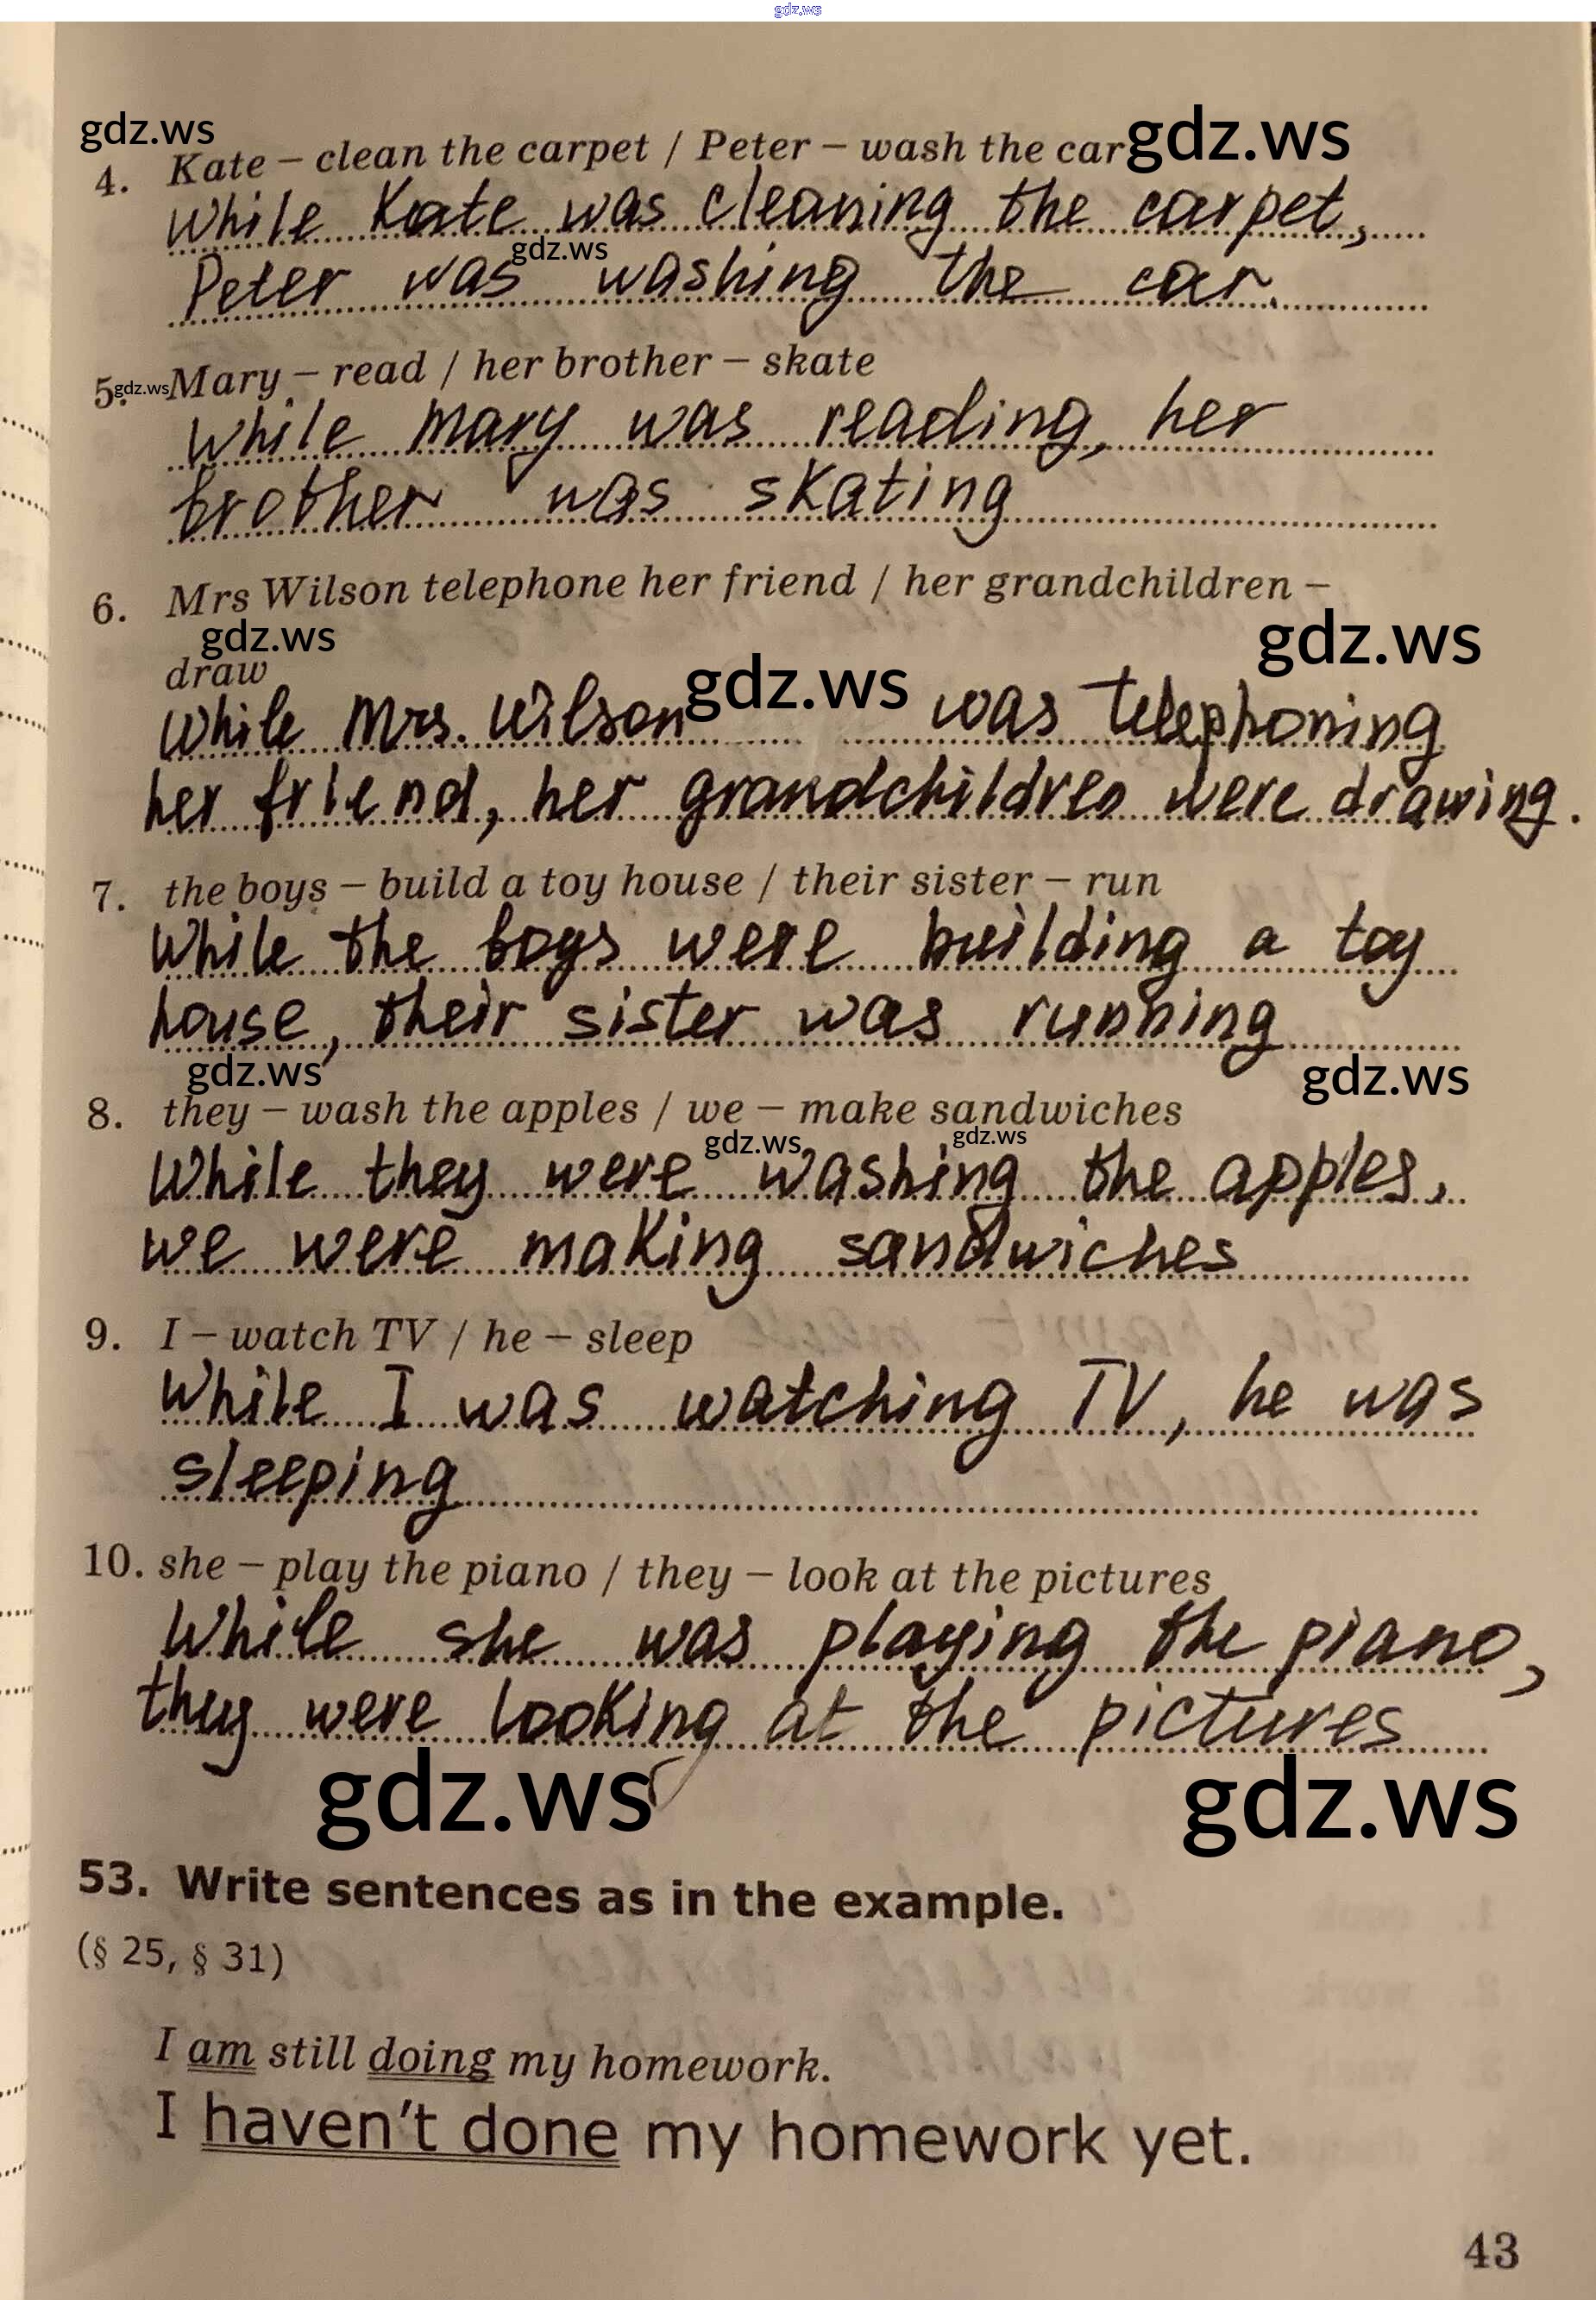 gdz.ws
gdz.ws
gdz.ws
4. Kate – clean the carpet / Peter – wash the car
While Kate was cleaning the carpet,
gdz.ws
Peter was washing the car.
5. Mary – read / her brother – skate
gdz.ws
While Mary was reading, her
brother was skating
6. Mrs Wilson telephone her friend / her grandchildren –
gdz.ws
gdz.ws
draw
gdz.ws
While Mrs. Wilson was telephoning
her friend, her grandchildren were drawing.
7. the boys – build a toy house / their sister – run
While the boys were building a toy
house, their sister was running
gdz.ws
gdz.ws
8. they – wash the apples / we – make sandwiches
gdz.ws
gdz.ws
While they were washing the apples,
we were making sandwiches
9. I – watch TV / he – sleep
While I was watching TV, he was
sleeping
10. she – play the piano / they – look at the pictures
While she was playing the piano,
they were looking at the pictures
gdz.ws
gdz.ws
53. Write sentences as in the example.
(§ 25, § 31)
I am still doing my homework.
I haven't done my homework yet.
43